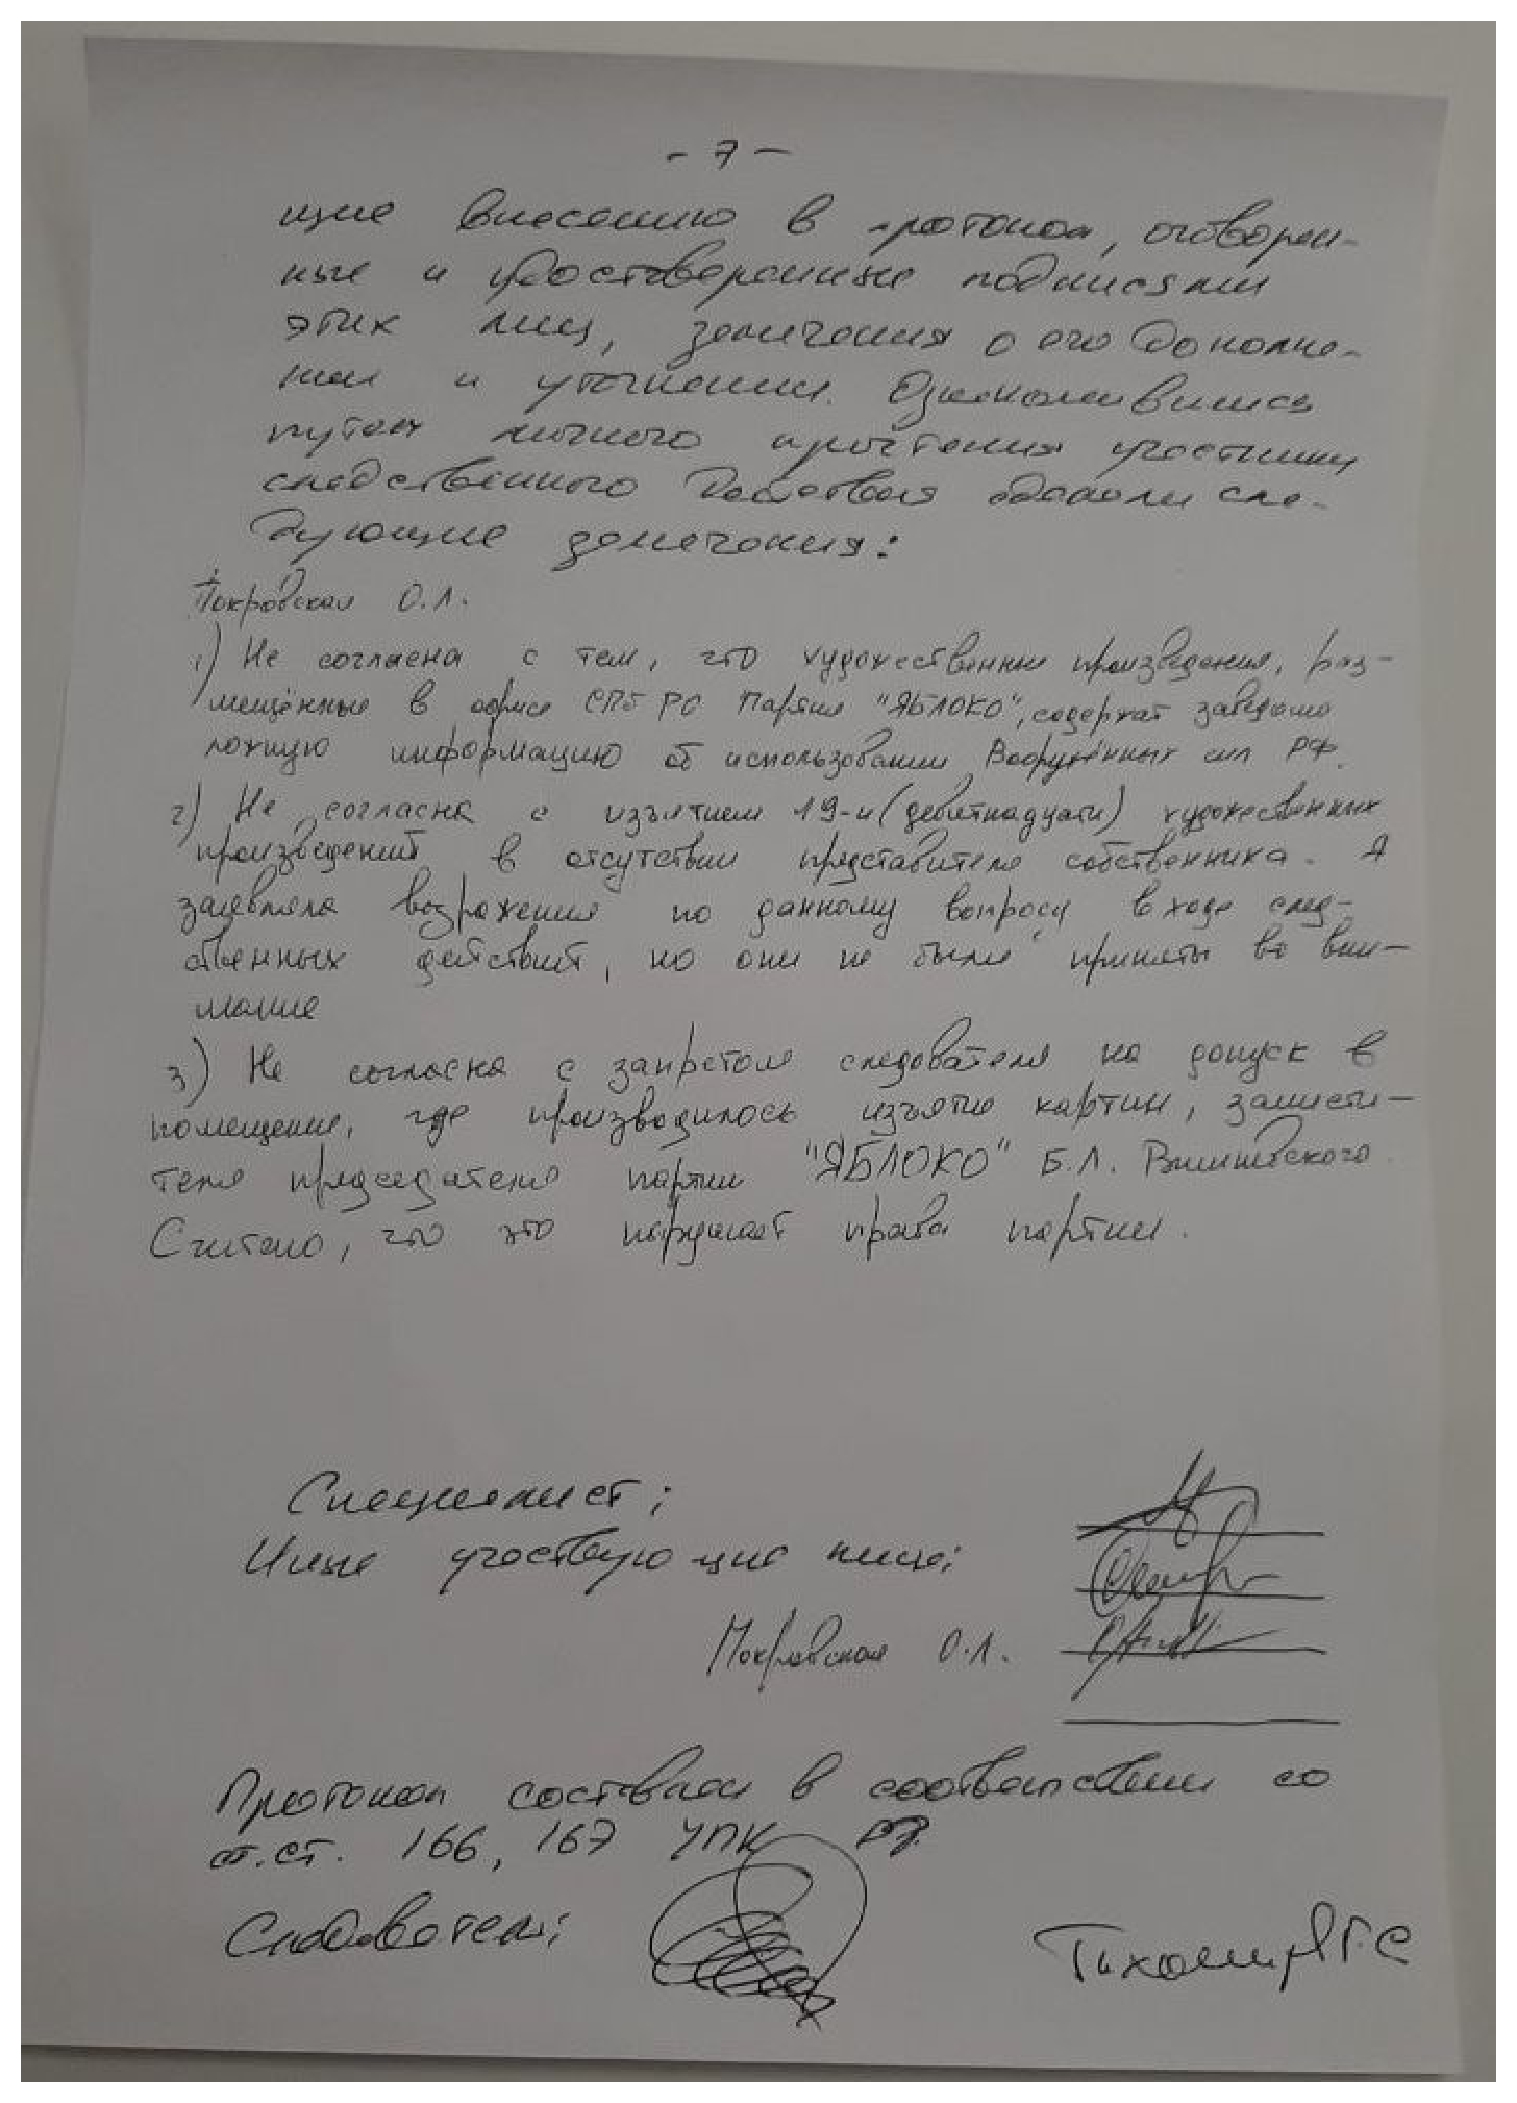 - 7 -
щие внесению в протокол, оговорен-
ные и удостоверенные подписями
этих лиц, замечания о его дополне-
нии и уточнении. Ознакомившись
путем личного прочтения участники
следственного действия сделали сле-
дующие замечания:
Покровская О.Л.
1) Не согласна с тем, что художественные произведения, раз-
мещённые в офисе СПб РО Партии "ЯБЛОКО", содержат заведомо
ложную информацию об использовании Вооружённых сил РФ.
2) Не согласна с изъятием 19-и (девятнадцати) художественных
произведений в отсутствии представителя собственника. Я
заявляла возражения по данному вопросу в ходе след-
ственных действий, но они не были приняты во вни-
мание
3) Не согласна с запретом следователя на допуск в
помещение, где производилось изъятие картин, замести-
теля председателя партии "ЯБЛОКО" Б.Л. Вишневского.
Считаю, что это нарушает права партии.
Специалист:
Иные участвующие лица:
Покровская О.Л.
Протокол составлен в соответствии со
ст.ст. 166, 167 УПК РФ
Следователь: